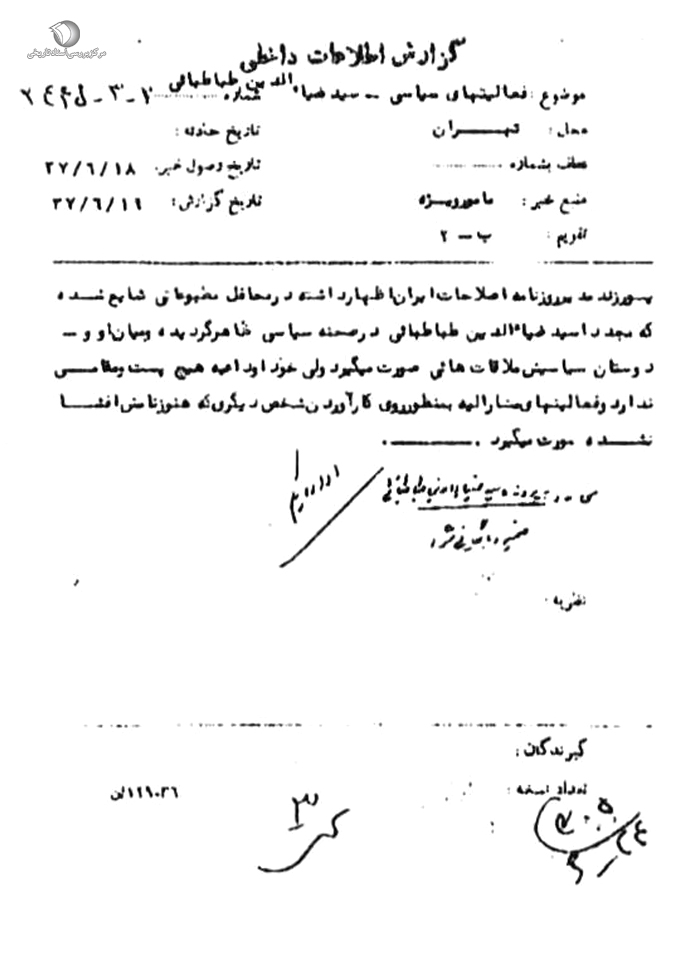 مرکز بررسی اسناد تاریخی
گزارش اطلاعات داخلی
موضوع : فعالیتهای سیاسی – سید ضیاء الدین طباطبائی شماره
محل : تهران تاریخ حدثه :
عطف بشماره تاریخ وصول خبر: ۳۷/۶/۱۸
منبع خبر : مامور ویژه تاریخ گزارش: ۳۷/۶/۱۹
تقویم : ب – ۲
پورزند مدیر روزنامه اصلاحات ایران اظهار داشته در محافل مطبوعاتی شایع شده
که مجددا سید ضیاء الدین طباطبائی در صحنه سیاسی ظاهر گردیده و میان او و –
دوستان سیاسیش ملاقات هائی صورت میگیرد ولی خود او داعیه هیچ پست و مقامی
ندارد و فعالیتهای مشارالیه بمنظور روی کار آوردن شخص دیگری که هنوز نامش افشا
نشده صورت میگیرد .
در پرونده سید ضیاء الدین طباطبائی
نظریه .
گیرندگان :
تعداد نسخه :
۳